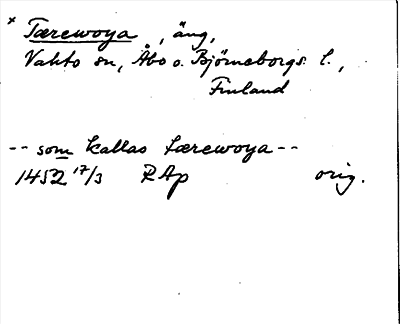 x Tærewoya, äng,
Vahto sn, Åbo o. Björneborgs l.,
Finland
-- som kallas tærewoya --
1452 17/3 RAp orig.